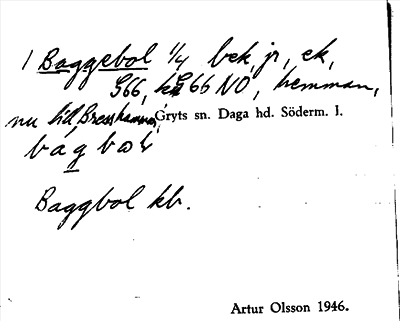 1 Baggebol ¼ bek, jr, ek,
G66, k G66 NO, hemman,
nu till Bresshammar, Gryts sn. Daga hd. Söderm. l.
bagbol
Baggbol kb.
Artur Olsson 1946.